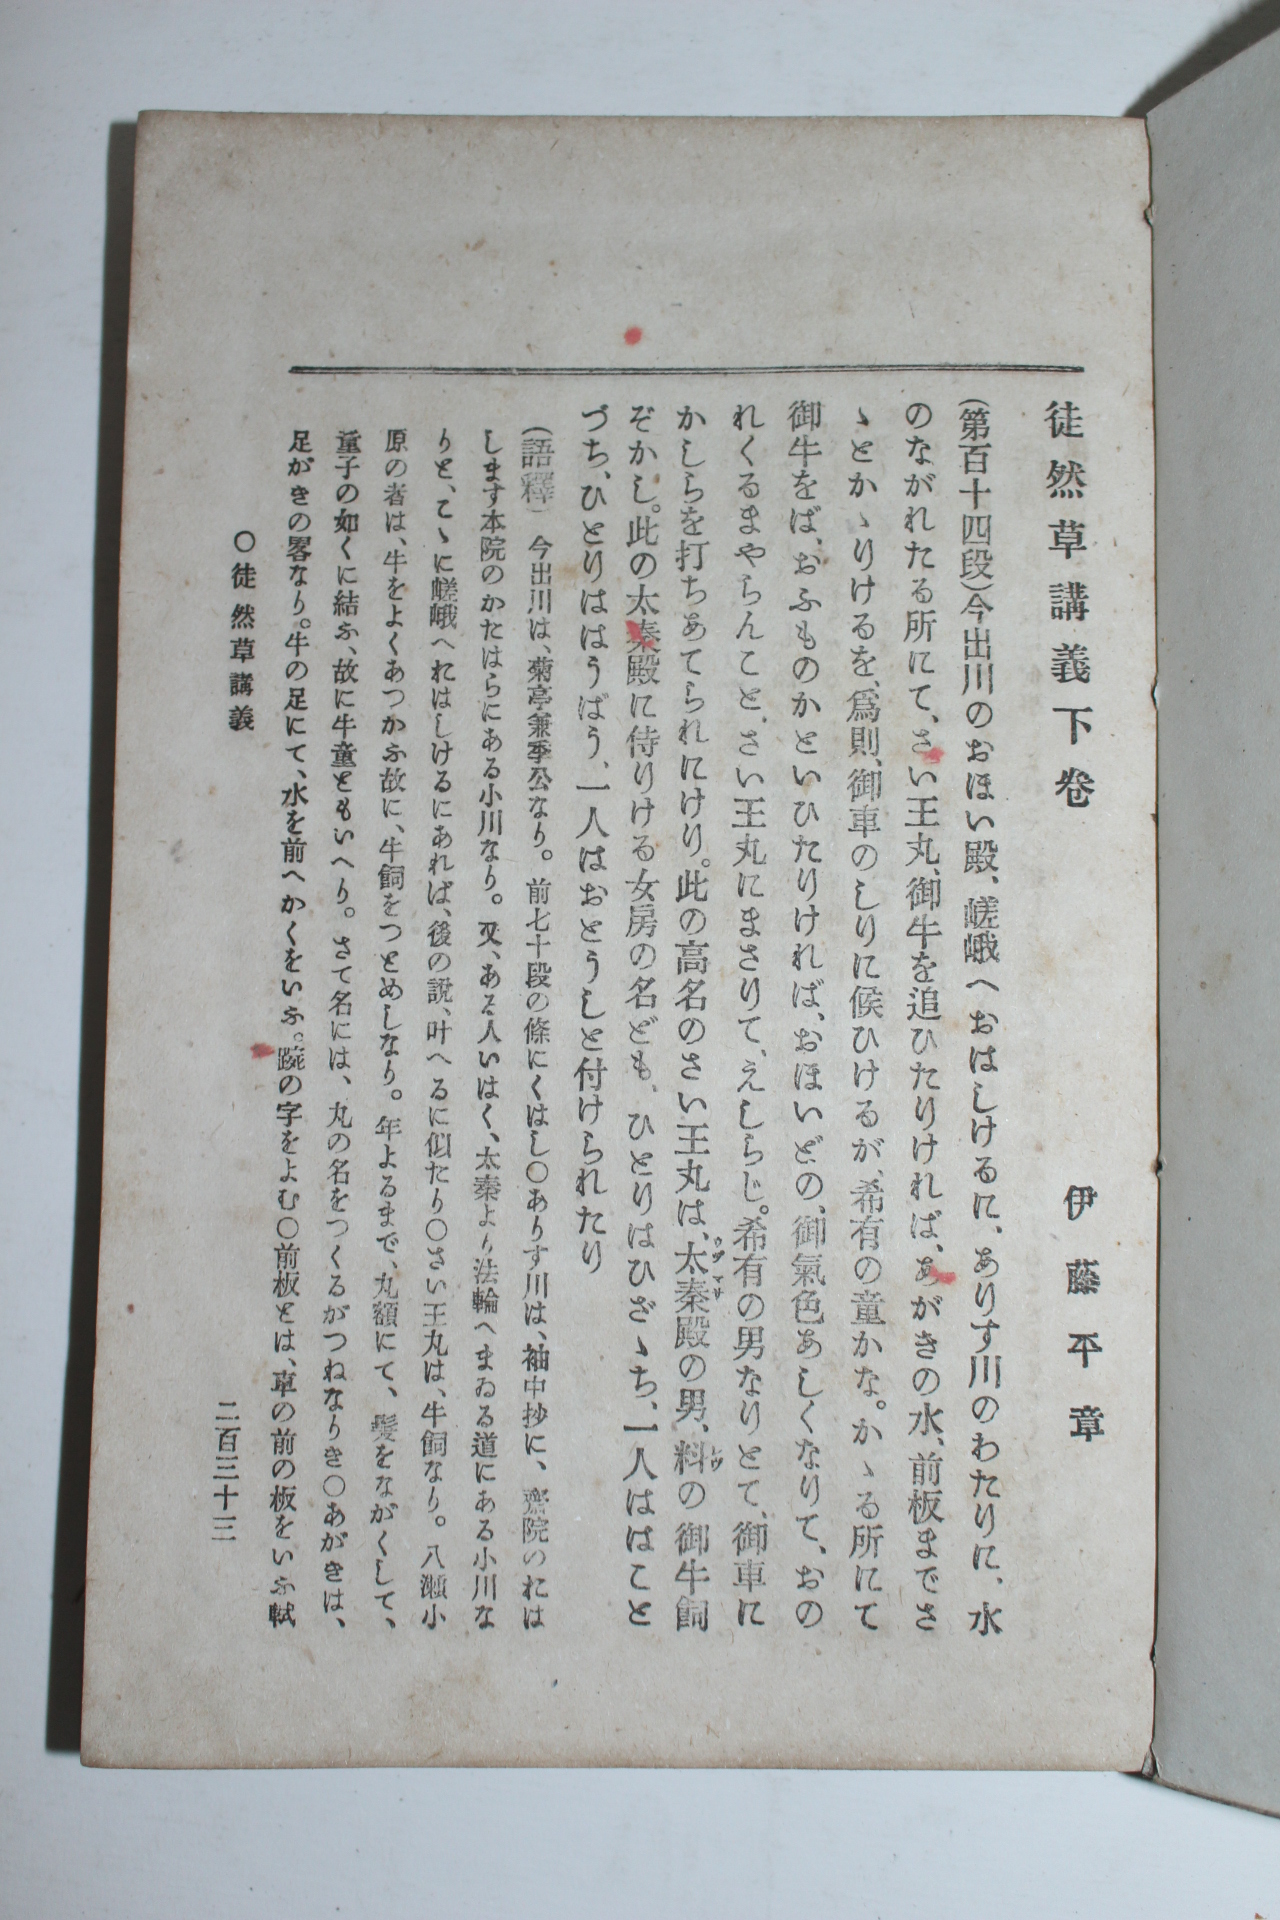 徒然草講義下卷
伊藤平章
(第百十四段)今出川のおほい殿、嵯峨へおはしけるに、ありす川のわたりに、水
のながれたる所にて、さい王丸、御牛を追ひたりければ、あがきの水、前板までさ
ゝとかゝりけるを、爲則、御車のしりに候ひけるが、希有の童かな。かゝる所にて
御牛をば、おふものかといひたりければ、おほいどの、御氣色あしくなりて、おの
れくるまやらんこと、さい王丸にまさりて、えしらじ。希有の男なりとて、御車に
かしらを打ちあてられにけり。此の高名のさい王丸は、太秦殿の男、料の御牛飼
ぞかし。此の太秦殿に侍りける女房の名ども、ひとりはひざゝち、一人ははこと
づち、ひとりははうばう、一人はおとうしと付けられたり
(語釋) 今出川は、菊亭兼季公なり。前七十段の條にくはし○ありす川は、袖中抄に、齋院のれは
します本院のかたはらにある小川なり。又、ある人いはく、太秦より法輪へまゐる道にある小川な
りと、こゝに嵯峨へれはしけるにあれば、後の説、叶へるに似たり○さい王丸は、牛飼なり。八瀬小
原の者は、牛をよくあつかふ故に、牛飼をつとめしなり。年よるまで、丸額にて、髪をながくして、
童子の如くに結ふ、故に牛童ともいへり。さて名には、丸の名をつくるがつねなりき○あがきは、
足がきの畧なり。牛の足にて、水を前へかくをいふ。踠の字をよむ○前板とは、車の前の板をいふ軾
○徒然草講義
二百三十三